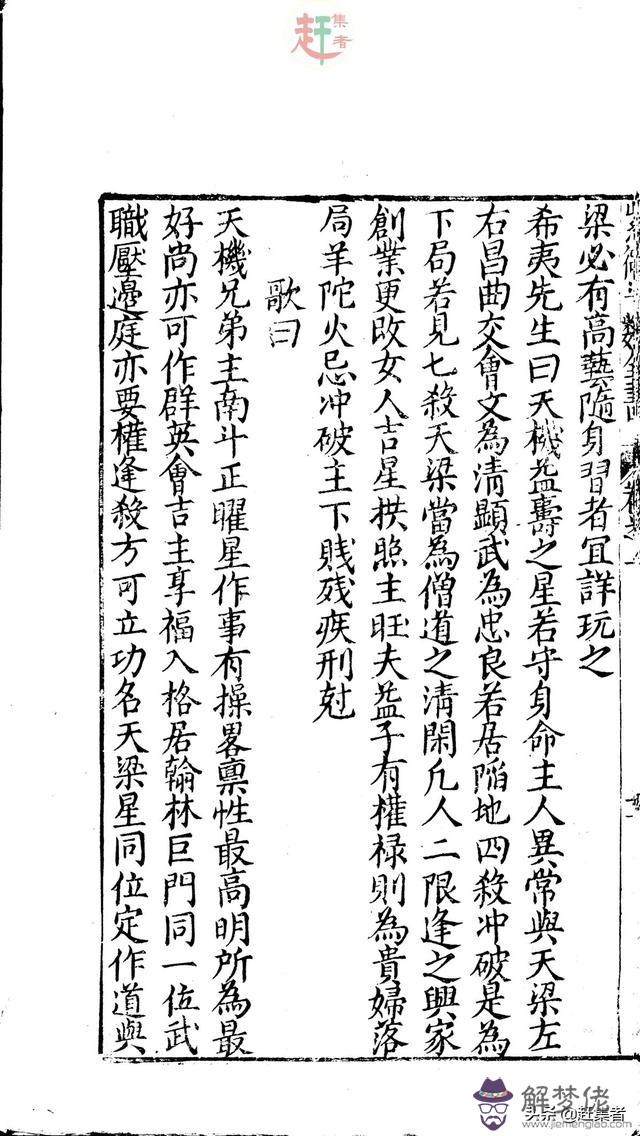 赶集者
梁必有高藝隨身習者宜詳玩之
希夷先生曰天機益壽之星若守身命主人異常與天梁左
右昌曲交會文為清顯武為忠良若居陷地四殺冲破是為
下局若見七殺天梁當為僧道之清閑凢人二限逢之興家
創業更改女人吉星拱照主旺夫益子有權禄則為貴婦落
局羊陀火忌冲破主下賤残疾刑尅
歌曰
天機兄弟主南斗正曜星作事有操畧禀性最高明所為最
好尚亦可作群英會吉主享福入格居翰林巨門同一位武
職壓邉庭亦要權逢殺方可立功名天梁星同位定作道與
解梦佬
www.jiemenglao.com
头条@赶集者